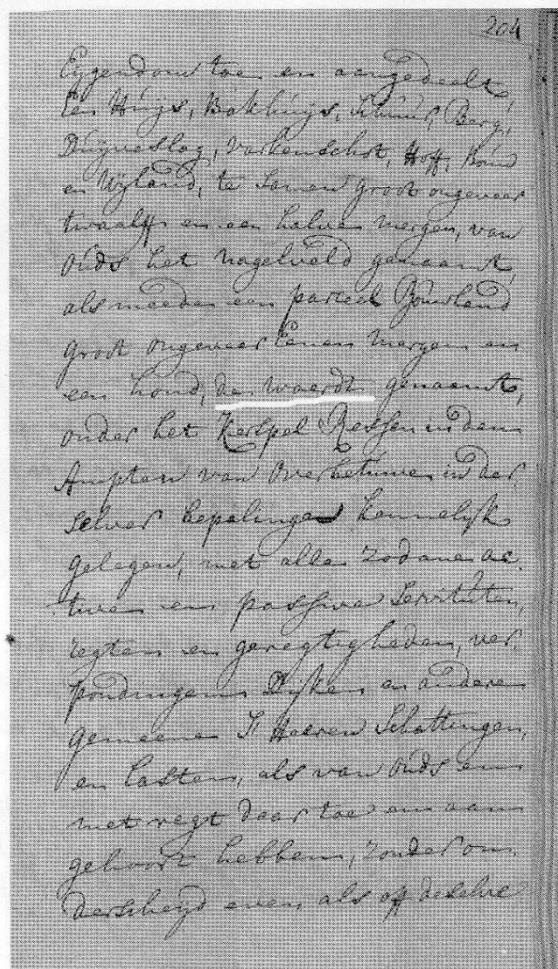 204
Eijgendom toe en aangedeelt,
Een Huijs, Bakhuijs, Schuur, Berg,
Duijveslag, Varkenschot, Hoff, Bouw
en Wijland, te samen groot ongeveer
twaalff en een halve mergen, van
ouds het nagelveld genaamt,
als meede een parceel Bouwland
groot ongeveer Eenen mergen en
een hond, de waerdt genaemt,
onder het Kerspel Ressen in den
Ampten van Overbetuwe in der
selver bepalingen kennelijk
gelegen, met alle zodane ac-
tive en passive Servituten,
regten en geregtigheden, ver-
pondingen Dijken en andere
gemeene 's Heeren Schattingen,
en lasten, als van ouds en
met regt daar toe en aan
gehoort hebben, zonder on
derscheijd even als off deselve